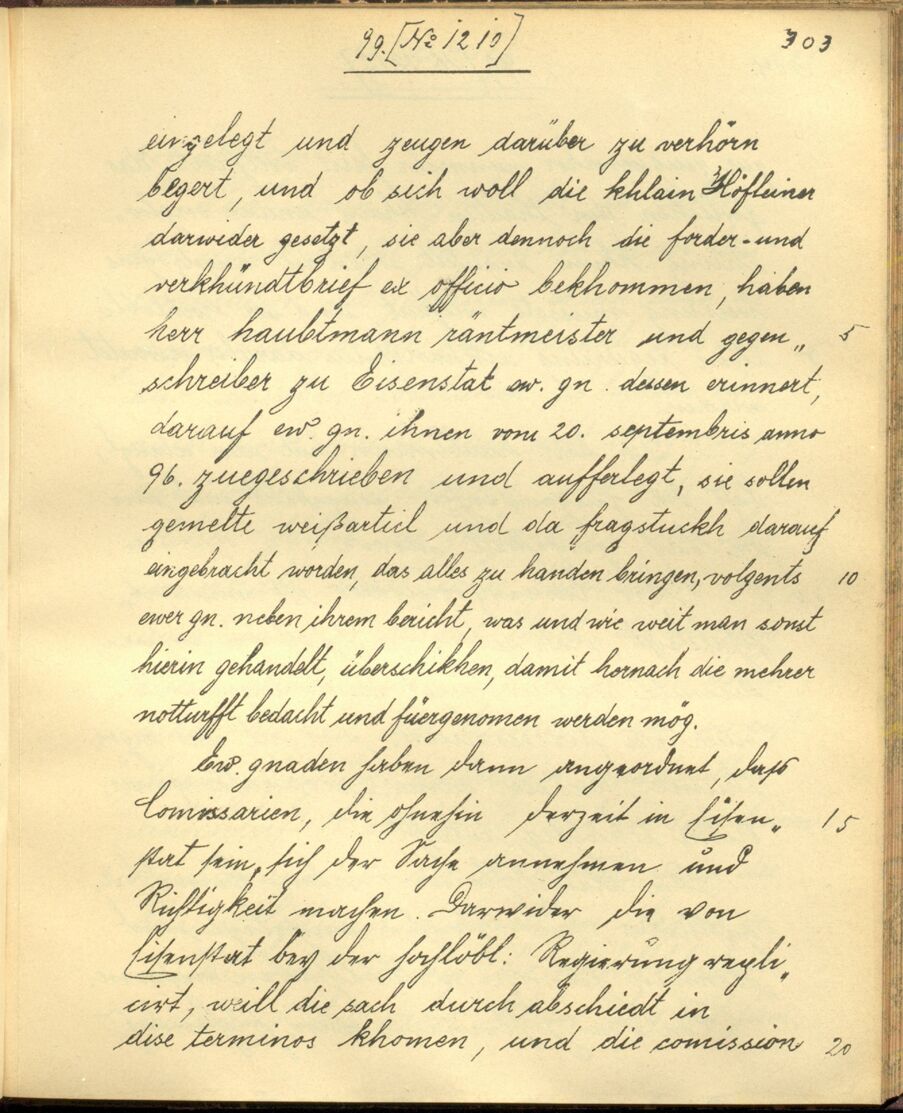 99. [No 1210]
303
eingelegt und zeugen darüber zu verhörn
begert, und ob sich woll die khlain Höfleiner
darwider gesetzt, sie aber dennoch die forder- und
verkhündtbrief ex officio bekhommen, haben
herr haubtmann räntmeister und gegen„ 5
schreiber zu Eisenstat ew. gn. dessen erinnert,
darauf ew. gn. ihnen vom 20. septembris anno
96. zuegeschrieben und aufferlegt, sie sollen
gemelte weißarticl und da fragstuckh darauf
eingebracht worden, das alles zu handen bringen, volgents 10
ewer gn. neben ihrem bericht, was und wie weit man sonst
hierin gehandelt, überschikhen, damit hernach die mehrer
notturfft bedacht und füergenomen werden mög.
Ew. gnaden haben dann angeordnet, dass
Comissarien, die ohnehin derzeit in Eisen„ 15
stat sein, sich der Sache annehmen und
Richtigkeit machen. Darwider die von
Eisenstat bey der hochlöbl: Regierung repli„
cirt, weill die sach durch abschiedt in
dise terminos khomen, und die comission 20